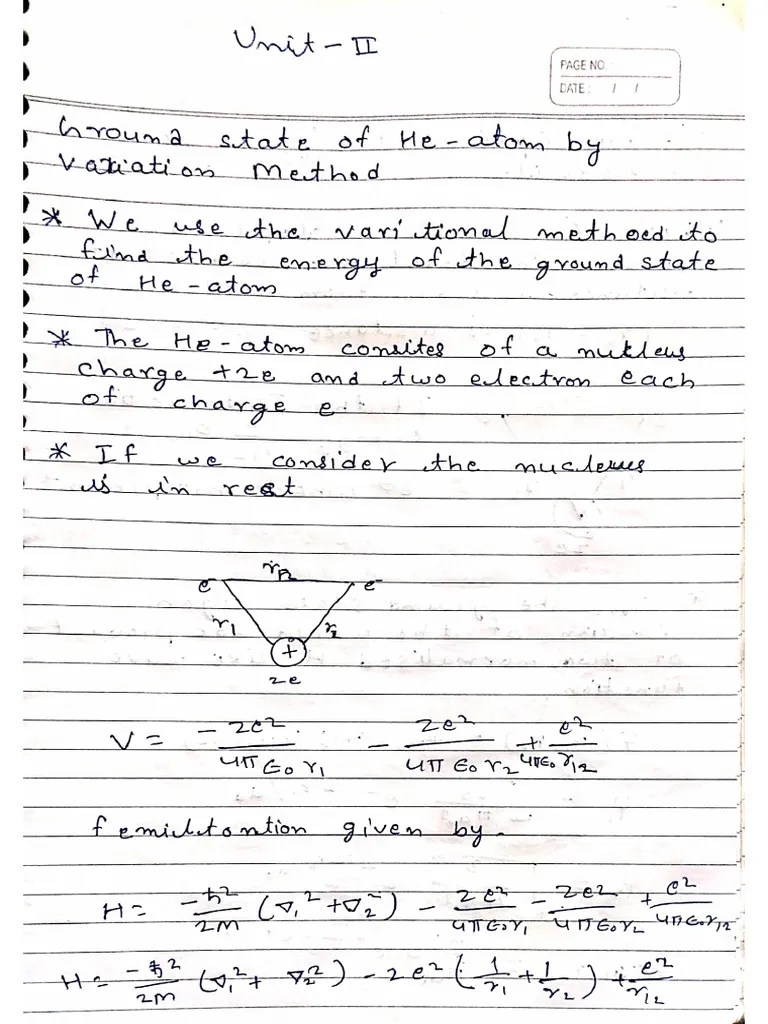 Unit - II
PAGE NO
DATE: / /
Ground state of He-atom by
Variation Method
* We use the varitional methoed to
find the energy of the ground state
of He-atom
* The He-atom consites of a nukleus
charge +2e and two electron each
of charge e.
* If we consider the nucleus
is in rest.
e r12 e
r1 r2
+
2e
V = -2e²/4π∈0 r1 - 2e²/4π∈0 r2 + e²/4π∈0 r12
given by.
H = -ħ²/2m (∇1² + ∇2²) - 2e²/4π∈0r1 - 2e²/4π∈0r2 + e²/4π∈0r12
H = -ħ²/2m (∇1² + ∇2²) - 2e² (1/r1 + 1/r2) + e²/r12